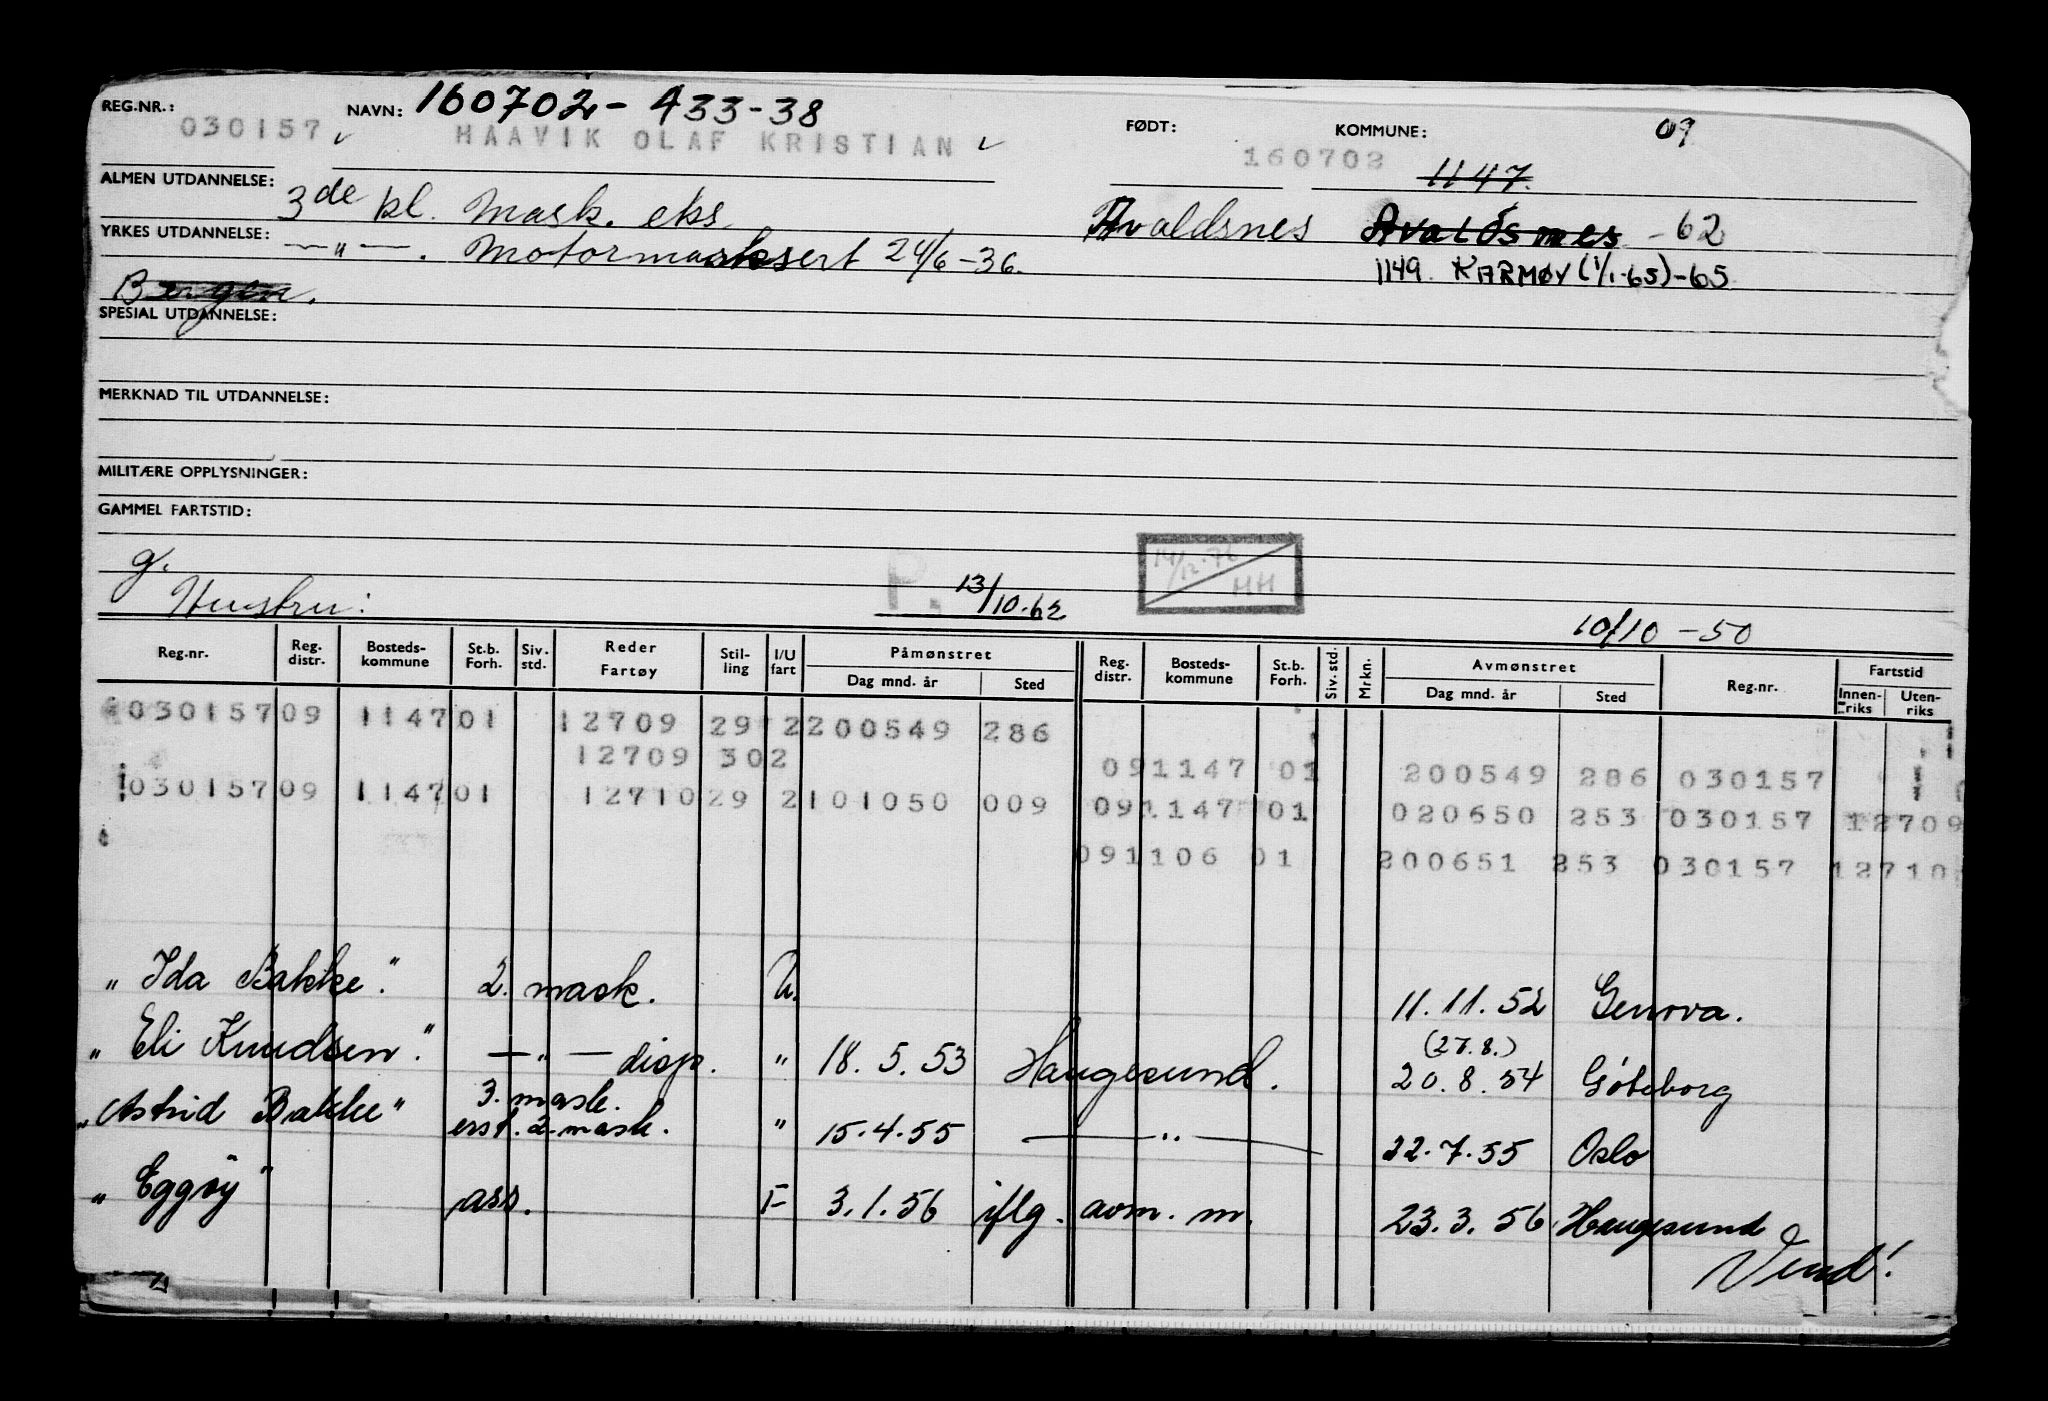 REG.NR.: 030157 NAVN: 160702- 433-38
HAAVIK OLAF KRISTIAN FØDT: 160702 KOMMUNE: 09
1147.
ALMEN UTDANNELSE: 3de kl. Mask. eks. Avaldsnes Avaldsnes -62
YRKES UTDANNELSE: —"—. Motormasksert 24/6-36. 1149. KARMØY (1/1-65)-65
Bergen.
SPESIAL UTDANNELSE:
MERKNAD TIL UTDANNELSE:
MILITÆRE OPPLYSNINGER:
GAMMEL FARTSTID:
g.
Hustru: P. 13/10.62 14/12.76 HH 10/10-50
Reg.nr. Reg. distr. Bosteds-kommune St.b. Forh. Siv. std. Reder Fartøy Stil-ling I/U fart Påmønstret Dag mnd. år Sted Reg. distr. Bosteds-kommune St.b. Forh. Siv. std. Mrkn. Avmønstret Dag mnd. år Sted Reg.nr. Fartstid Innen-riks Uten-riks
030157 09 1147 01 12709 29 2 200549 286
12709 302 091147 01 200549 286 030157
030157 09 1147 01 12710 29 2 101050 009 091147 01 020650 253 030157 12709
091106 01 200651 253 030157 12710
"Ida Bakke." 2. mask. U. 11.11.52 Genova.
"Eli Knudsen." —"— disp. " 18.5.53 Haugesund. (27.8.) 20.8.54 Göteborg
"Astrid Bakke" 3. mask. erst. 2. mask. " 15.4.55 —"— 22.7.55 Oslo
"Eggøy" ass. F 3.1.56 iflg. avm. m. 23.3.56 Haugesund
Vend!